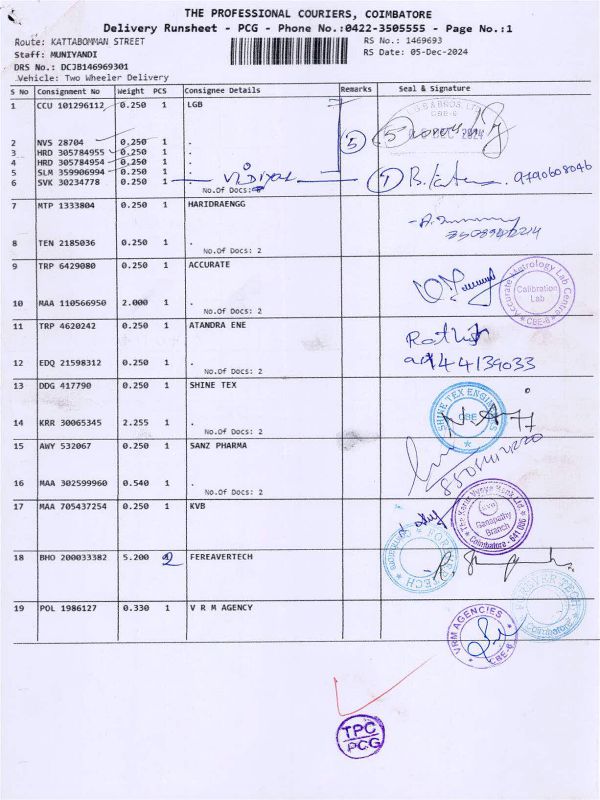 THE PROFESSIONAL COURIERS, COIMBATORE
Delivery Runsheet - PCG - Phone No.:0422-3505555 - Page No.:1
Route: KATTABOMMAN STREET
RS No.: 1469693
Staff: MUNIYANDI
RS Date: 05-Dec-2024
DRS No.: DCJB146969301
Vehicle: Two Wheeler Delivery
S No Consignment No Weight PCS Consignee Details Remarks Seal & Signature
1 CCU 101296112 0.250 1 LGB
2 NVS 28704 0.250 1 .
3 HRD 305784955 0.250 1 .
4 HRD 305784954 0.250 1 .
5 SLM 359906994 0.250 1 .
6 SVK 30234778 0.250 1 .
5 5
1 9790608046
No.Of Docs:
7 MTP 1333804 0.250 1 HARIDRAENGG
8 TEN 2185036 0.250 1 .
No.Of Docs: 2
9 TRP 6429080 0.250 1 ACCURATE
Accurate Metrology Lab Centre
Calibration
Lab
CBE-6
10 MAA 110566950 2.000 1 .
No.Of Docs: 2
11 TRP 4620242 0.250 1 ATANDRA ENE
12 EDQ 21598312 0.250 1 .
No.Of Docs: 2
13 DDG 417790 0.250 1 SHINE TEX
SHINE TEX ENGINEERS
CBE
14 KRR 30065345 2.255 1 .
No.Of Docs: 2
15 AWY 532067 0.250 1 SANZ PHARMA
16 MAA 302599960 0.540 1 .
No.Of Docs: 2
17 MAA 705437254 0.250 1 KVB
The Karur Vysya Bank Ltd.
KVB
Ganapathy
Branch
Coimbatore - 641 006
18 BHO 200033382 5.200 2 FEREAVERTECH
Coimbatore
19 POL 1986127 0.330 1 V R M AGENCY
VRM AGENCIES
CBE-6
TPC
PCG